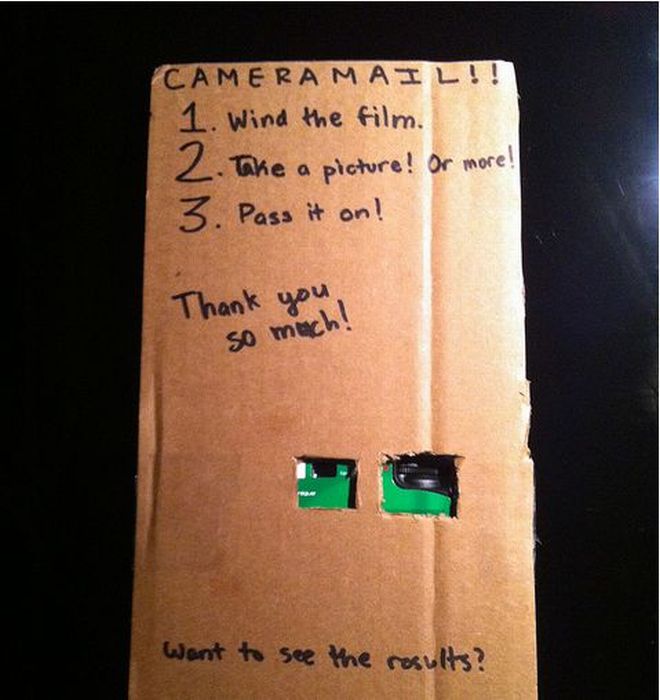 CAMERAMAIL!!
1. Wind the film.
2. Take a picture! Or more!
3. Pass it on!
Thank you
so much!
Want to see the results?